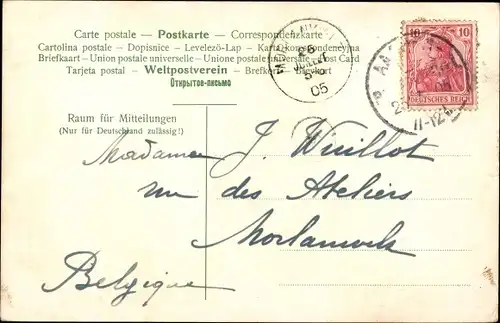 Carte postale - Postkarte - Correspondenzkarte
Cartolina postale - Dopisnice - Levelező-Lap - Karta korespondencyjna
Briefkaart - Union postale universelle - Unione postale universale - Post Card
Tarjeta postal - Weltpostverein - Brefkort - Brevkort
Открытое-письмо
Raum für Mitteilungen
(Nur für Deutschland zulässig!)
25
JUILLET
5-
05
10 10
DEUTSCHES REICH
11-12
Madame J. Wuillot
rue des Ateliers
Morlanwels
Belgique